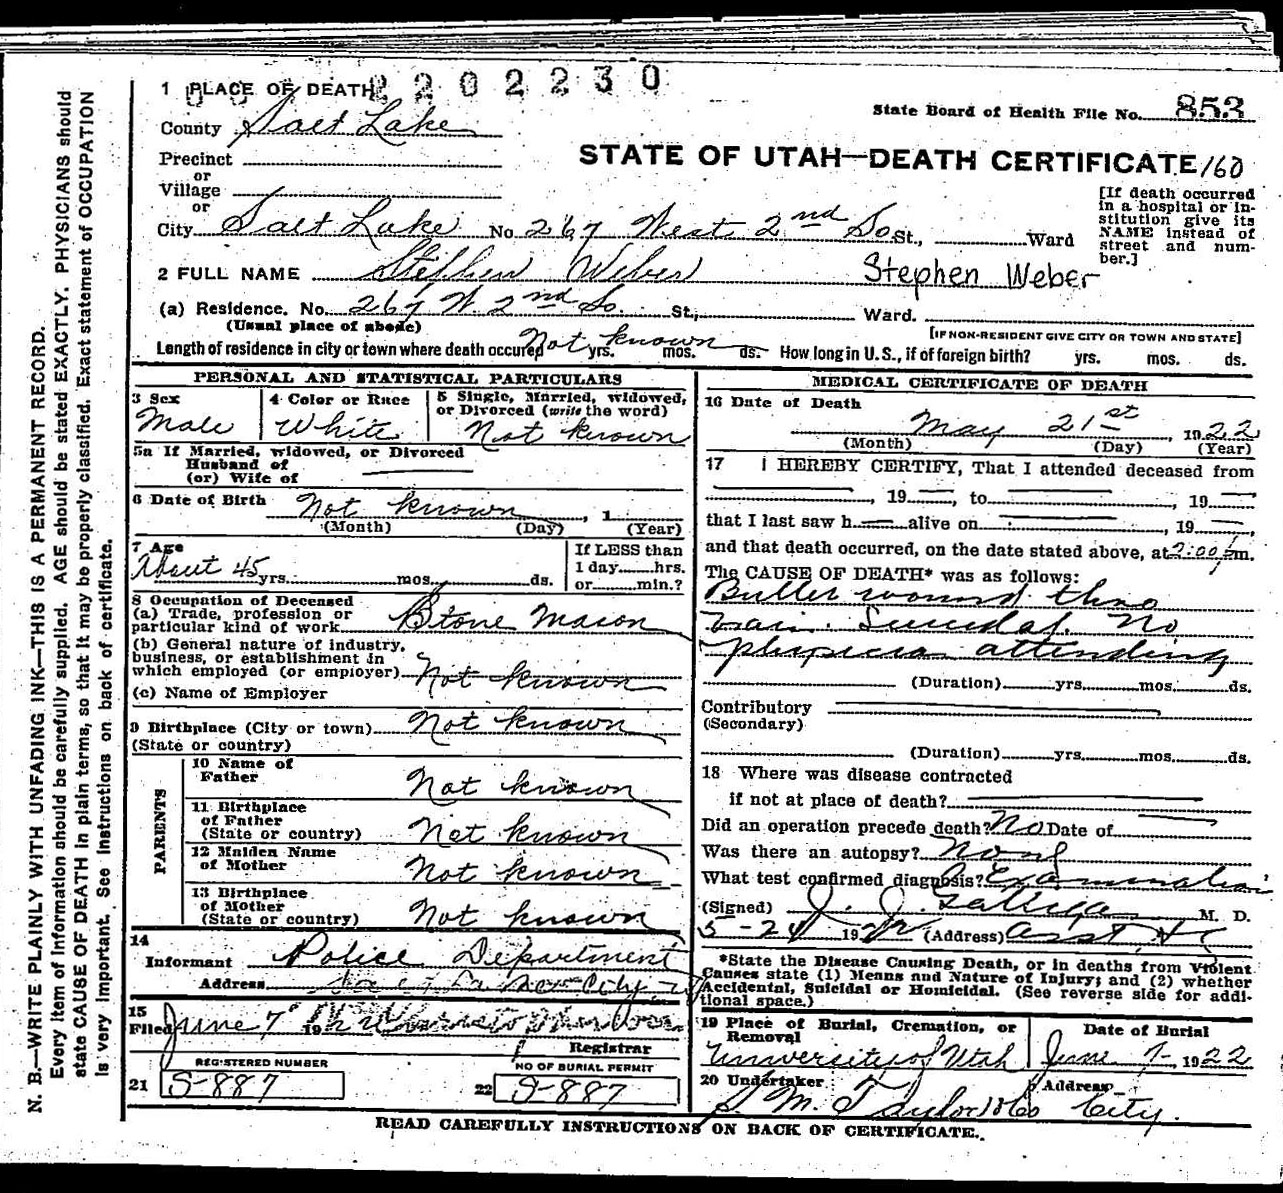 2202230
1 PLACE OF DEATH
State Board of Health File No. 853
County Salt Lake
STATE OF UTAH—DEATH CERTIFICATE 160
Precinct
or
Village
or
City Salt Lake No 267 West 2nd So. St., Ward
[If death occurred
in a hospital or in-
stitution give its
NAME instead of
street and num-
ber.]
2 FULL NAME Stephen Weber Stephen Weber
(a) Residence. No. 267 W. 2nd So. St., Ward.
(Usual place of abode) [IF NON-RESIDENT GIVE CITY OR TOWN AND STATE]
Length of residence in city or town where death occured Not known yrs. mos. ds. How long in U.S., if of foreign birth? yrs. mos. ds.
PERSONAL AND STATISTICAL PARTICULARS
3 Sex
Male
4 Color or Race
White
5 Single, Married, widowed,
or Divorced (write the word)
Not known
5a If Married, widowed, or Divorced
Husband of
(or) Wife of
6 Date of Birth Not known, 1
(Month) (Day) (Year)
7 Age
About 45 yrs. mos. ds.
If LESS than
1 day hrs.
or min.?
8 Occupation of Deceased
(a) Trade, profession or
particular kind of work Stone Mason
(b) General nature of industry,
business, or establishment in
which employed (or employer) Not known
(c) Name of Employer
9 Birthplace (City or town) Not known
(State or country)
PARENTS
10 Name of
Father Not known
11 Birthplace
of Father
(State or country) Not known
12 Maiden Name
of Mother Not known
13 Birthplace
of Mother
(State or country) Not known
14
Informant Police Department
Address City
15
Filed June 7 19
Registrar
REGISTERED NUMBER
21 S-887
NO OF BURIAL PERMIT
22 S-887
MEDICAL CERTIFICATE OF DEATH
16 Date of Death
May 21st, 1922
(Month) (Day) (Year)
17 I HEREBY CERTIFY, That I attended deceased from
, 19 , to , 19
that I last saw h alive on , 19
and that death occurred, on the date stated above, at 2:00 p m.
The CAUSE OF DEATH* was as follows:
Bullet wound thro
brain. Suicidal. No
physician attending
(Duration) yrs. mos. ds.
Contributory
(Secondary)
(Duration) yrs. mos. ds.
18 Where was disease contracted
if not at place of death?
Did an operation precede death? No Date of
Was there an autopsy? None
What test confirmed diagnosis? Examination
(Signed) J. J. M. D.
5-24 1922 (Address) Asst
*State the Disease Causing Death, or in deaths from Violent
Causes state (1) Means and Nature of Injury; and (2) whether
Accidental, Suicidal or Homicidal. (See reverse side for addi-
tional space.)
19 Place of Burial, Cremation, or
Removal
University of Utah
Date of Burial
June 7- 1922
20 Undertaker Address
S. M. Taylor & Co City.
READ CAREFULLY INSTRUCTIONS ON BACK OF CERTIFICATE.
N. B.—WRITE PLAINLY WITH UNFADING INK—THIS IS A PERMANENT RECORD.
Every item of information should be carefully supplied. AGE should be stated EXACTLY. PHYSICIANS should
state CAUSE OF DEATH in plain terms, so that it may be properly classified. Exact statement of OCCUPATION
is very important. See instructions on back of certificate.